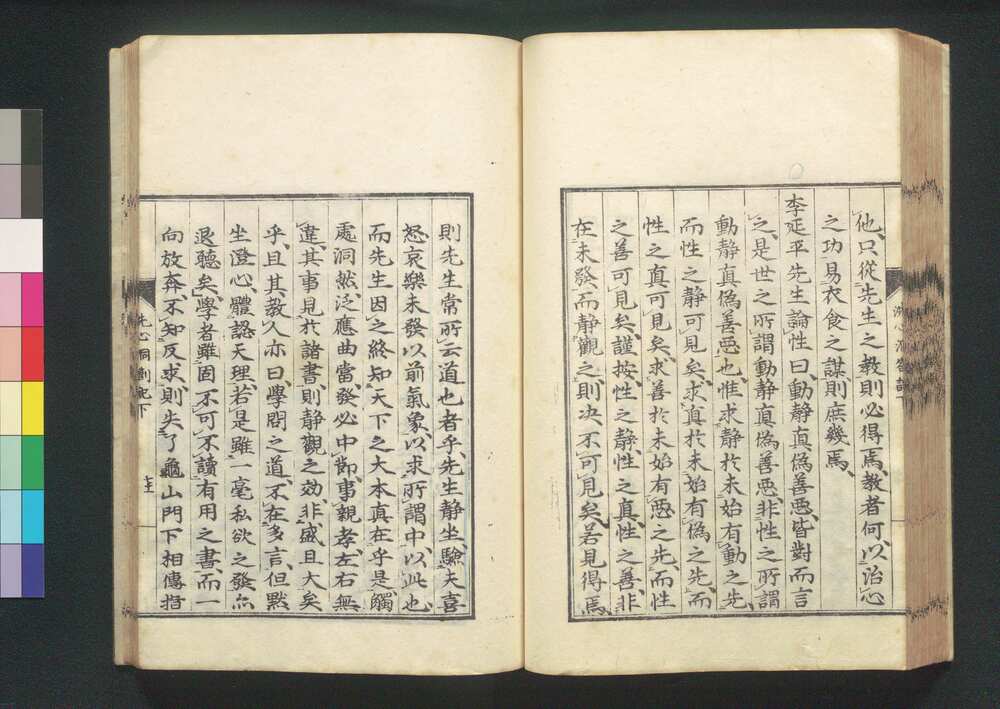 他、只從先生之教則必得焉、教者何、以治心
之功易衣食之謀則庶幾焉、
李延平先生論性曰、動靜真僞善惡、皆對而言
之、是世之所謂動靜真僞善惡、非性之所謂
動靜真僞善惡也、惟求靜於未始有動之先、
而性之靜可見矣、求真於未始有僞之先、而
性之真可見矣、求善於未始有惡之先、而性
之善可見矣、謹按、性之靜、性之真、性之善、非
在未發、而靜觀之、則决不可見矣、若見得焉、
則先生常所云道也者乎、先生靜坐、驗夫喜
怒哀樂未發以前氣象、以求所謂中、以此也、
而先生因之終知天下之大本真在乎是、觸
處洞然、泛應曲當、發必中節、事親孝、左右無
違、其事見於諸書、則靜觀之效、非盛且大矣
乎、且其教人亦曰、學問之道、不在多言、但默
坐澄心、體認天理、若是雖一毫私欲之發、亦
退聽矣、學者雖固不可不讀有用之書、而一
向放奔、不知反求、則失了龜山門下相傳指
洗心洞劄記下